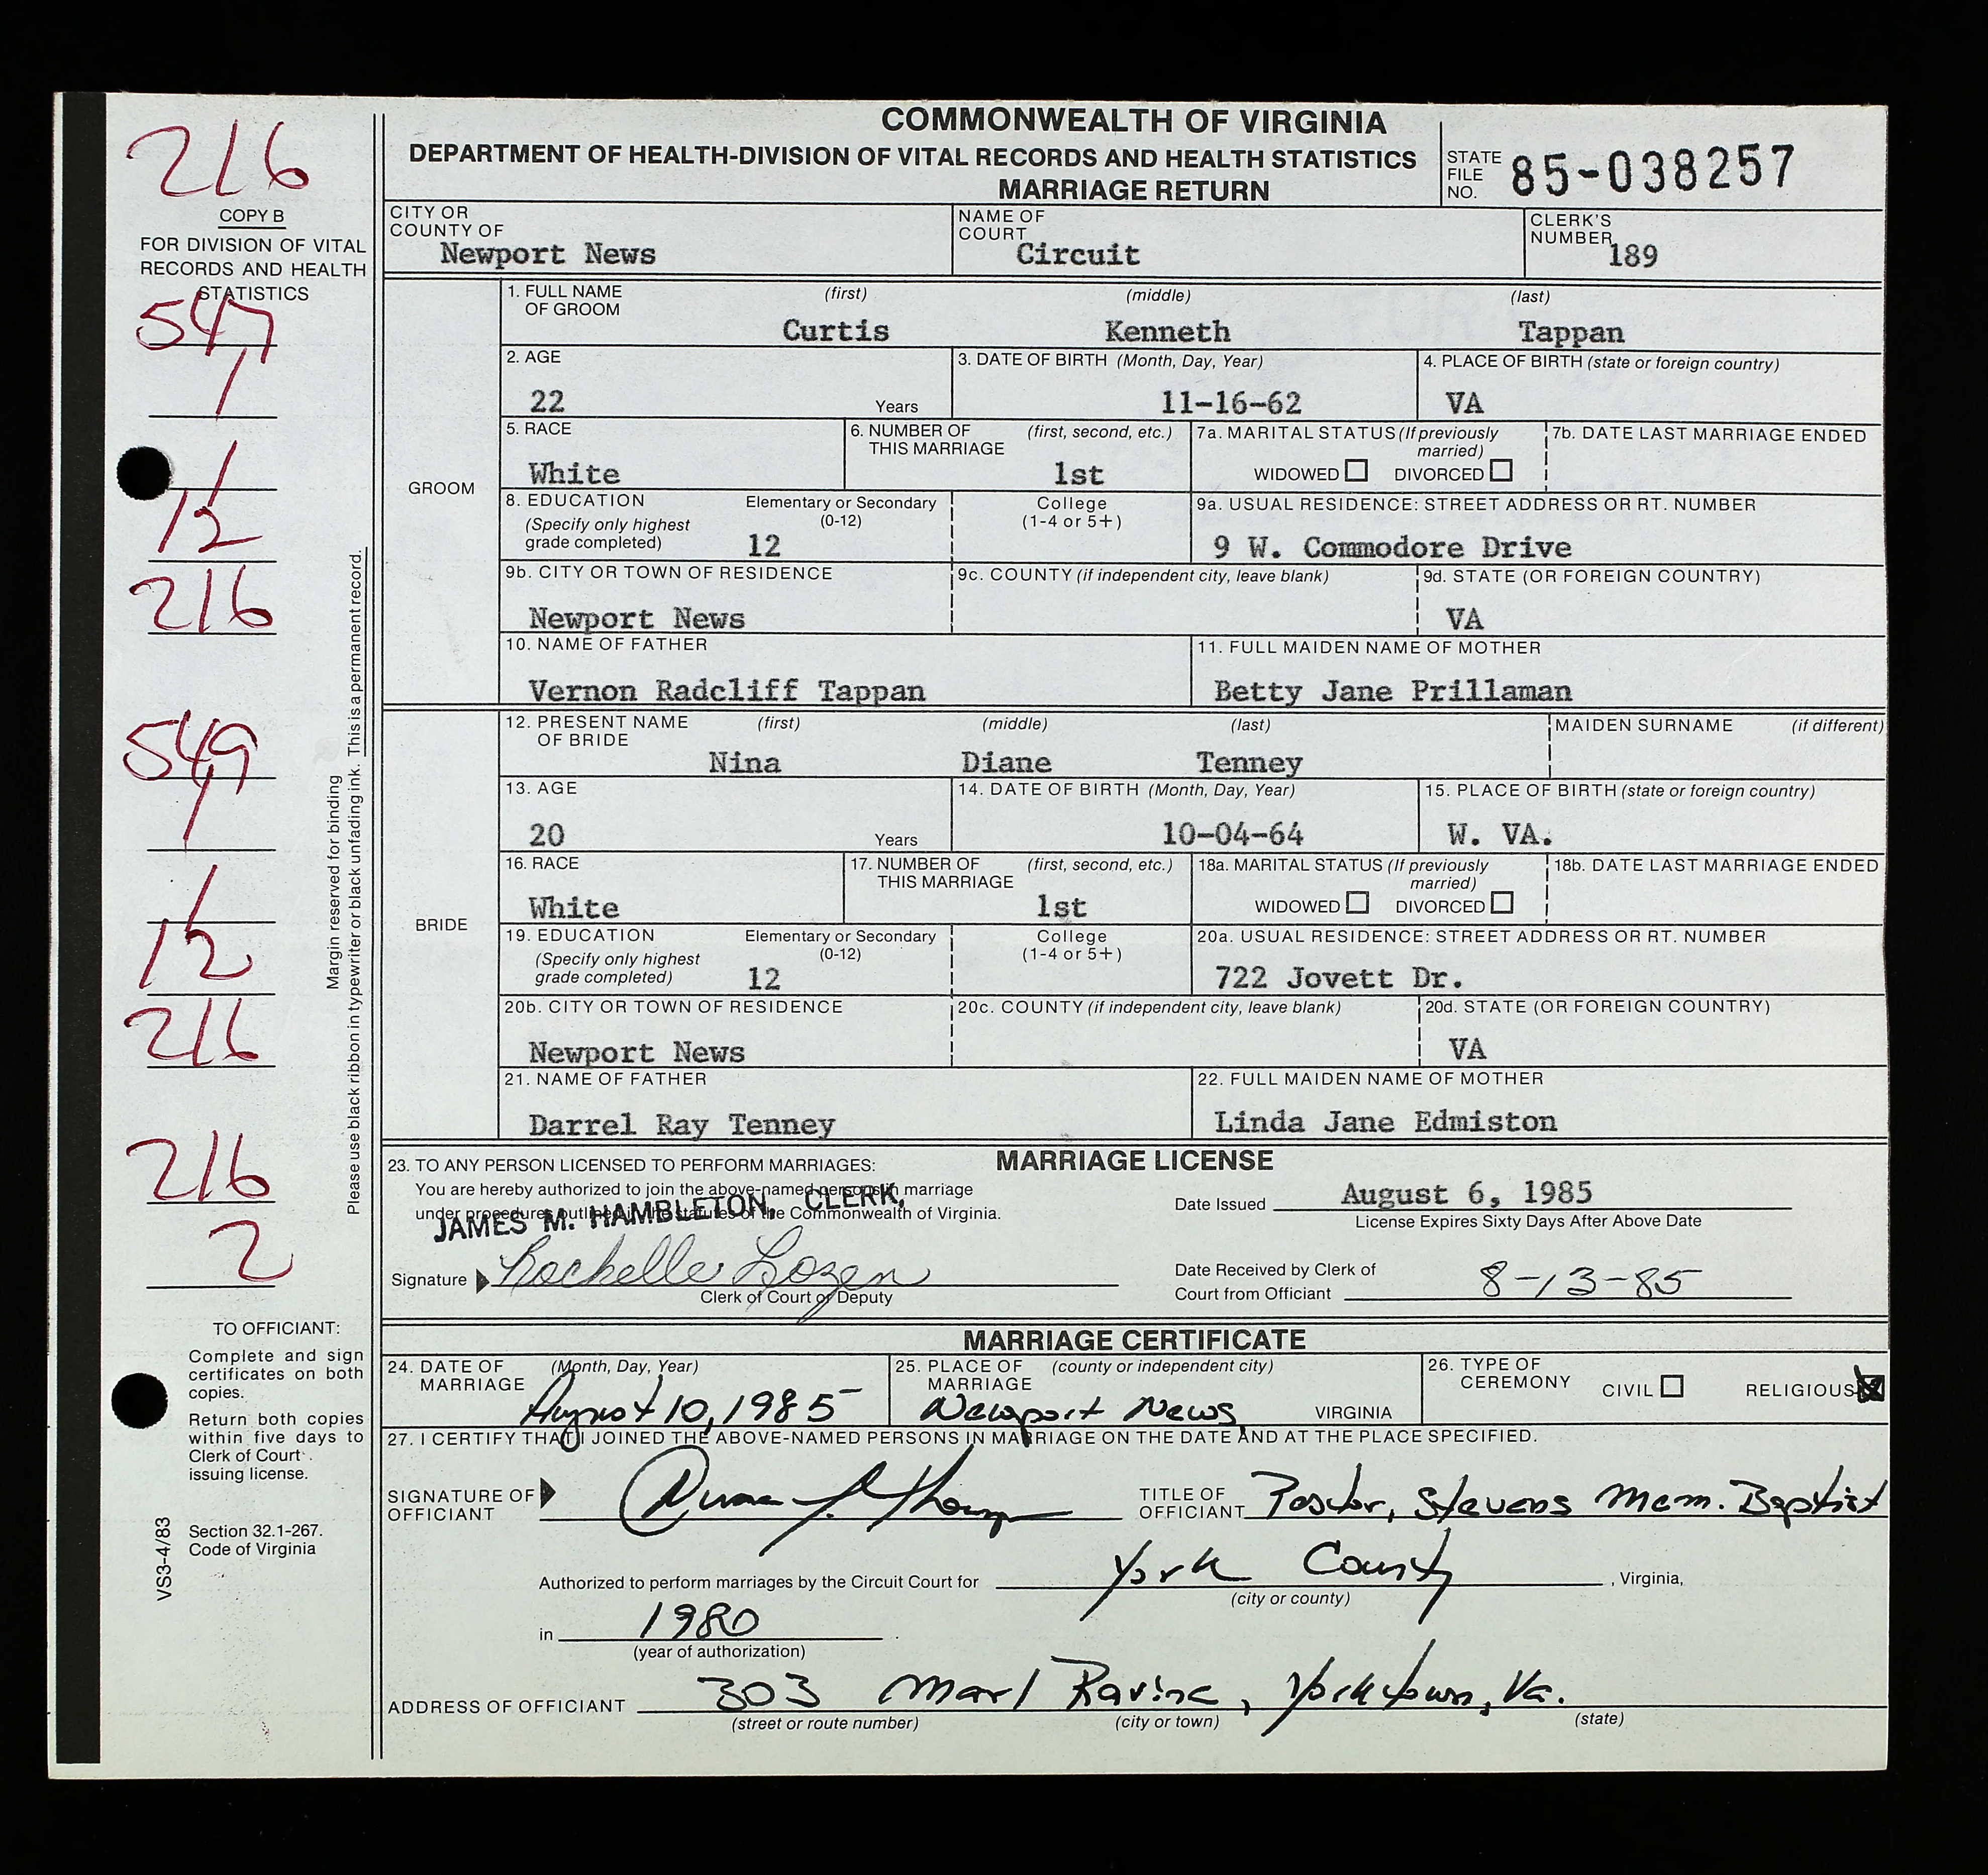 COMMONWEALTH OF VIRGINIA
DEPARTMENT OF HEALTH-DIVISION OF VITAL RECORDS AND HEALTH STATISTICS
MARRIAGE RETURN
STATE FILE NO. 85-038257
216
COPY B
FOR DIVISION OF VITAL
RECORDS AND HEALTH
STATISTICS
547
1
1
12
216
549
1
1
12
216
216
2
Margin reserved for binding
Please use black ribbon in typewriter or black unfading ink. This is a permanent record.
TO OFFICIANT:
Complete and sign
certificates on both
copies.
Return both copies
within five days to
Clerk of Court
issuing license.
Section 32.1-267.
Code of Virginia
VS3-4/83
CITY OR COUNTY OF Newport News
NAME OF COURT Circuit
CLERK'S NUMBER 189
GROOM
1. FULL NAME OF GROOM (first) (middle) (last)
Curtis Kenneth Tappan
2. AGE 22 Years
3. DATE OF BIRTH (Month, Day, Year) 11-16-62
4. PLACE OF BIRTH (state or foreign country) VA
5. RACE White
6. NUMBER OF THIS MARRIAGE (first, second, etc.) 1st
7a. MARITAL STATUS (If previously married) WIDOWED DIVORCED
7b. DATE LAST MARRIAGE ENDED
8. EDUCATION (Specify only highest grade completed) Elementary or Secondary (0-12) 12 College (1-4 or 5+)
9a. USUAL RESIDENCE: STREET ADDRESS OR RT. NUMBER
9 W. Commodore Drive
9b. CITY OR TOWN OF RESIDENCE Newport News
9c. COUNTY (if independent city, leave blank)
9d. STATE (OR FOREIGN COUNTRY) VA
10. NAME OF FATHER
Vernon Radcliff Tappan
11. FULL MAIDEN NAME OF MOTHER
Betty Jane Prillaman
BRIDE
12. PRESENT NAME OF BRIDE (first) (middle) (last) MAIDEN SURNAME (if different)
Nina Diane Tenney
13. AGE 20 Years
14. DATE OF BIRTH (Month, Day, Year) 10-04-64
15. PLACE OF BIRTH (state or foreign country) W. VA.
16. RACE White
17. NUMBER OF THIS MARRIAGE (first, second, etc.) 1st
18a. MARITAL STATUS (If previously married) WIDOWED DIVORCED
18b. DATE LAST MARRIAGE ENDED
19. EDUCATION (Specify only highest grade completed) Elementary or Secondary (0-12) 12 College (1-4 or 5+)
20a. USUAL RESIDENCE: STREET ADDRESS OR RT. NUMBER
722 Jovett Dr.
20b. CITY OR TOWN OF RESIDENCE Newport News
20c. COUNTY (if independent city, leave blank)
20d. STATE (OR FOREIGN COUNTRY) VA
21. NAME OF FATHER
Darrel Ray Tenney
22. FULL MAIDEN NAME OF MOTHER
Linda Jane Edmiston
MARRIAGE LICENSE
23. TO ANY PERSON LICENSED TO PERFORM MARRIAGES:
You are hereby authorized to join the above-named persons in marriage
under procedures outlined in the statutes of the Commonwealth of Virginia.
JAMES M. HAMBLETON, CLERK,
Signature Rochelle Lozen
Clerk of Court or Deputy
Date Issued August 6, 1985
License Expires Sixty Days After Above Date
Date Received by Clerk of
Court from Officiant 8-13-85
MARRIAGE CERTIFICATE
24. DATE OF MARRIAGE (Month, Day, Year) August 10, 1985
25. PLACE OF MARRIAGE (county or independent city) Newport News, VIRGINIA
26. TYPE OF CEREMONY CIVIL RELIGIOUS
27. I CERTIFY THAT I JOINED THE ABOVE-NAMED PERSONS IN MARRIAGE ON THE DATE AND AT THE PLACE SPECIFIED.
SIGNATURE OF OFFICIANT
TITLE OF OFFICIANT Pastor, Stevens Mem. Baptist
Authorized to perform marriages by the Circuit Court for York County, Virginia,
(city or county)
in 1980.
(year of authorization)
ADDRESS OF OFFICIANT 303 Marl Ravine, Yorktown, Va.
(street or route number) (city or town) (state)